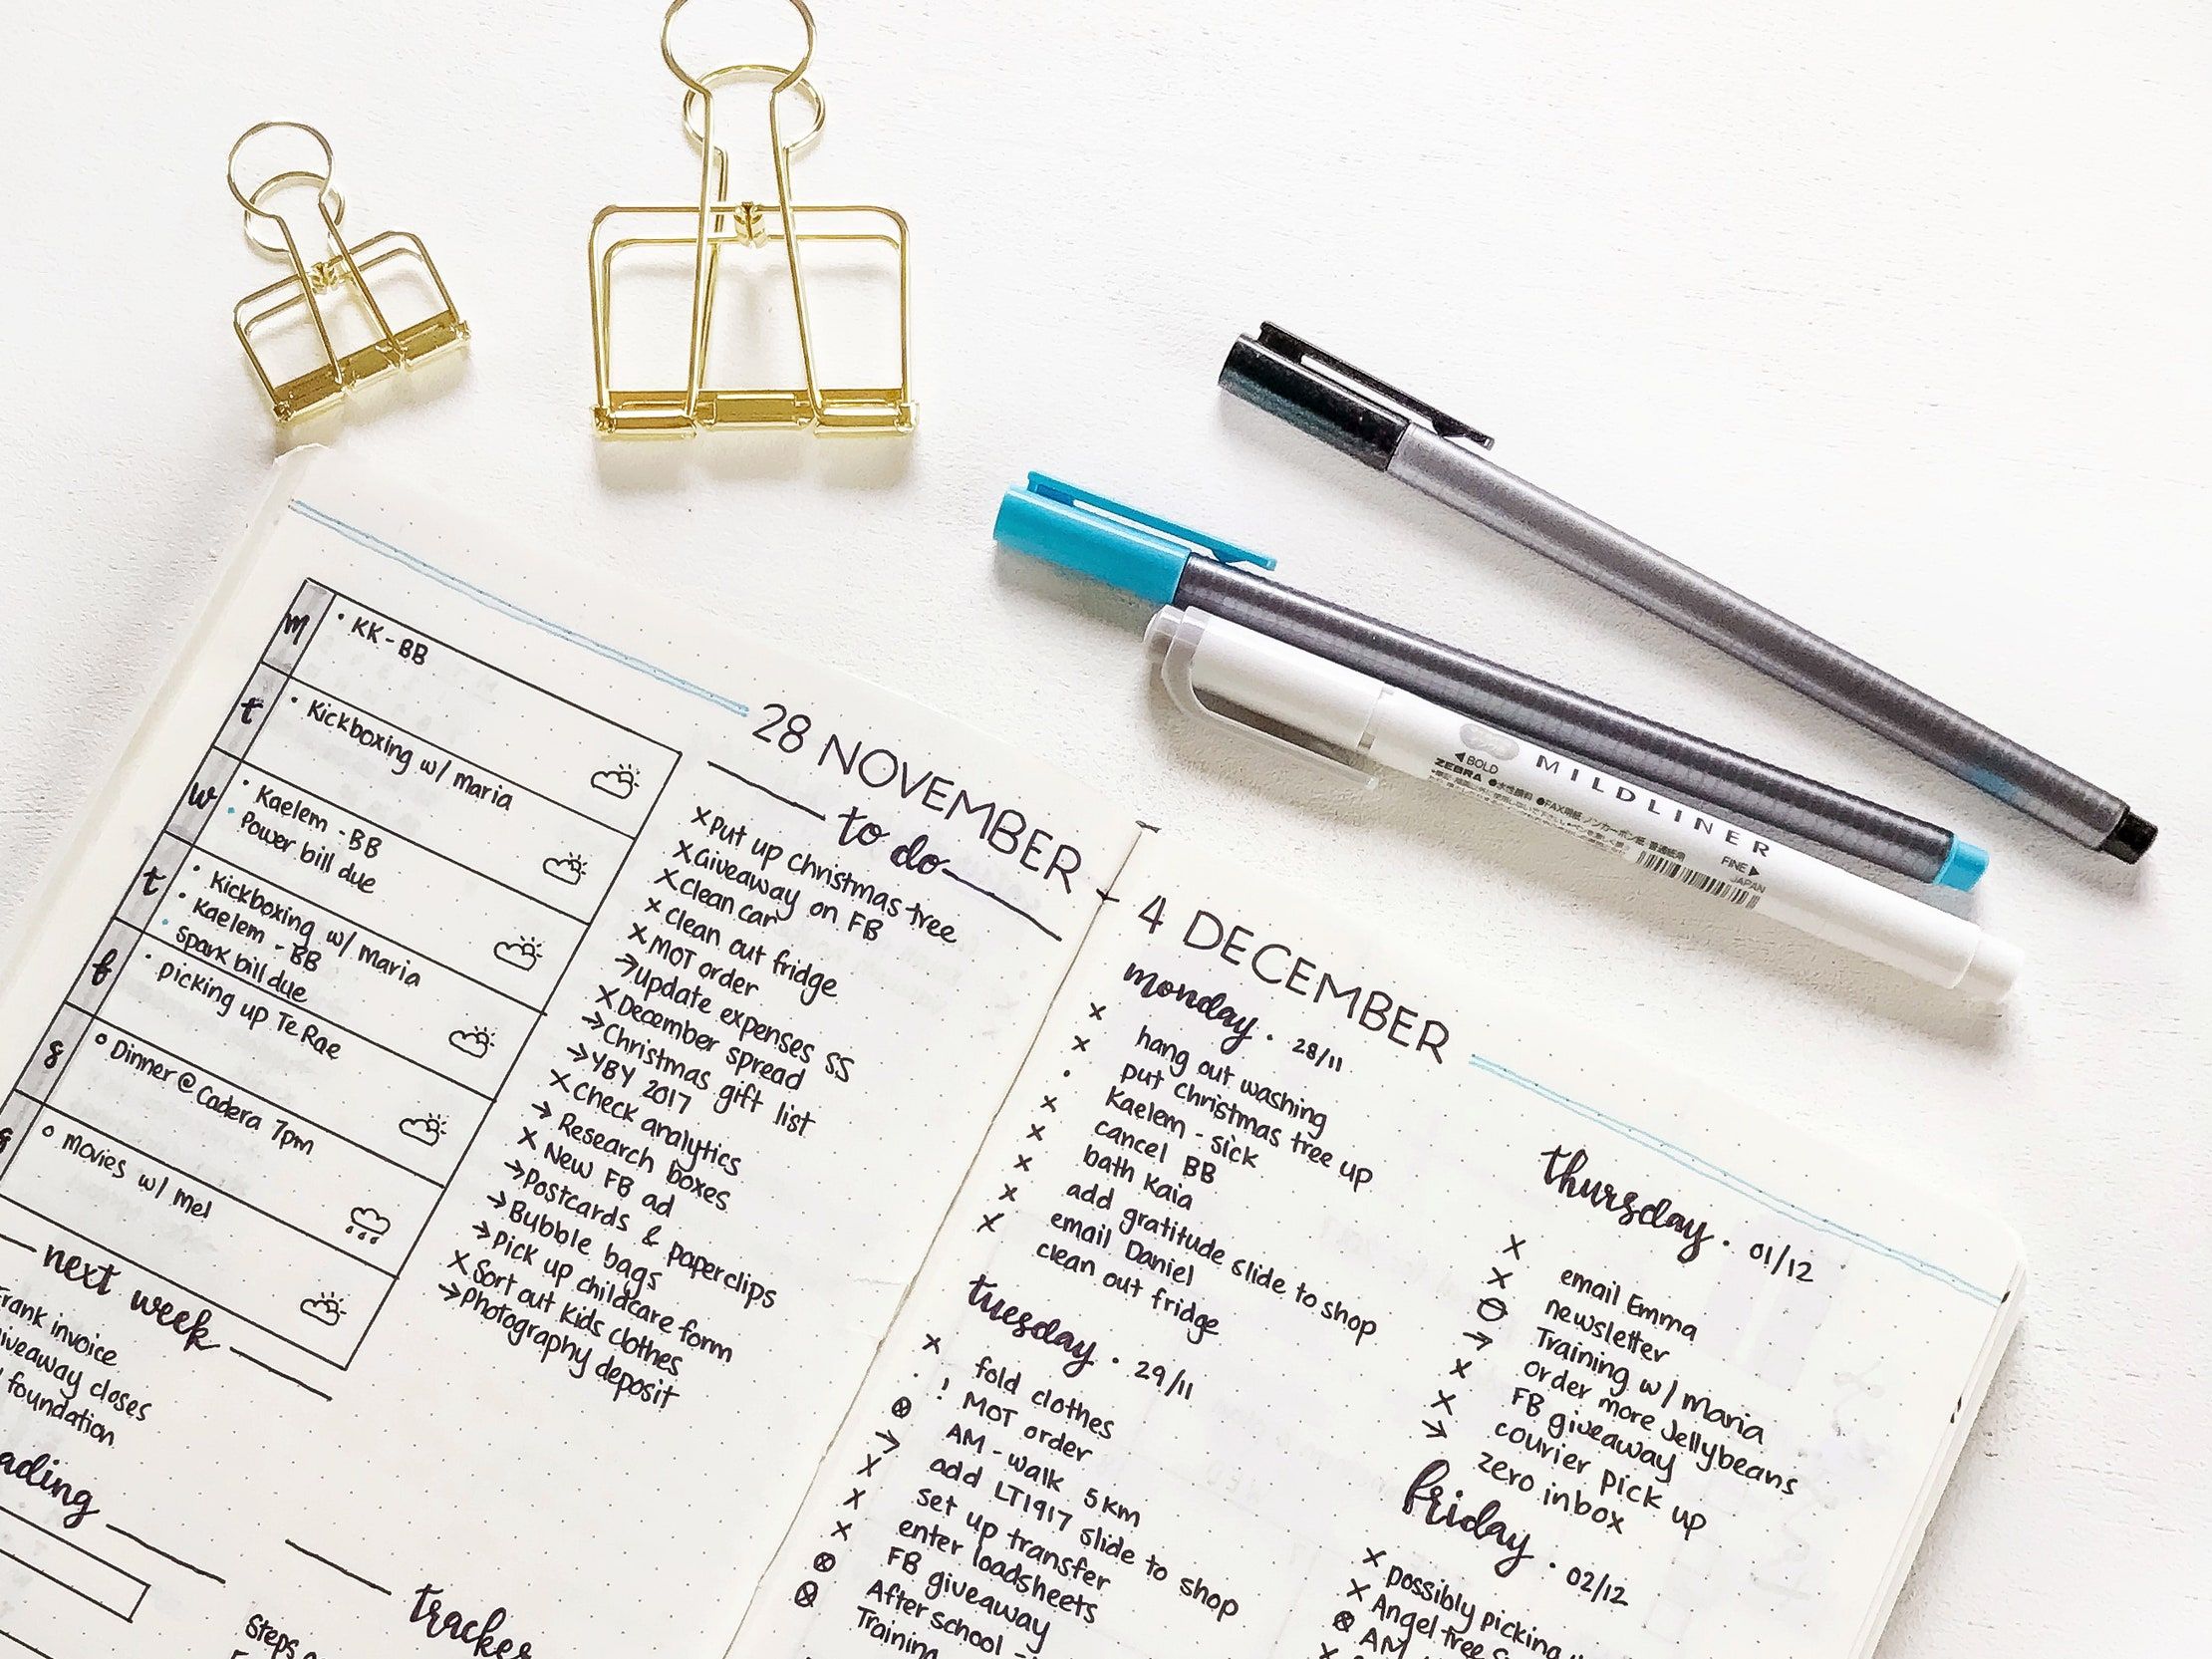 m
• KK - BB
t
• Kickboxing w/ maria
w
• Kaelem - BB
• Power bill due
t
• Kickboxing w/ maria
• Kaelem - BB
• spark bill due
f
• picking up Te Rae
s
○ Dinner @ Cadera 7pm
s
○ movies w/ mel
next week
Frank invoice
giveaway closes
foundation
ading
tracker
Steps
28 NOVEMBER -
to do
× Put up christmas tree
× Giveaway on FB
× Clean car
× clean out fridge
× MOT order
→ update expenses SS
× December spread
→ Christmas gift list
→ YBY 2017
× Check analytics
→ Research boxes
× New FB ad
→ Postcards & paperclips
→ Bubble bags
→ Pick up childcare form
× Sort out kids clothes
→ Photography deposit
4 DECEMBER
monday • 28/11
× hang out washing
× put christmas tree up
• Kaelem - sick
× cancel BB
× bath Kaia
× add gratitude slide to shop
× email Daniel
× clean out fridge
tuesday • 29/11
× fold clothes
• ! MOT order
⊗ AM - walk 5km
→ add LT1917 slide to shop
× set up transfer
× enter loadsheets
× FB giveaway
⊗ After school -
⊗ Training
thursday • 01/12
× email Emma
× newsletter
⊖ Training w/ maria
→ order more Jellybeans
× FB giveaway
× courier pick up
→ zero inbox
friday • 02/12
× possibly picking
× Angel tree
⊗ AM
MILDLINER
◀BOLD
ZEBRA ●水性顔料 ●FAX用紙・ノンカーボン紙・普通紙用
FINE▶
JAPAN